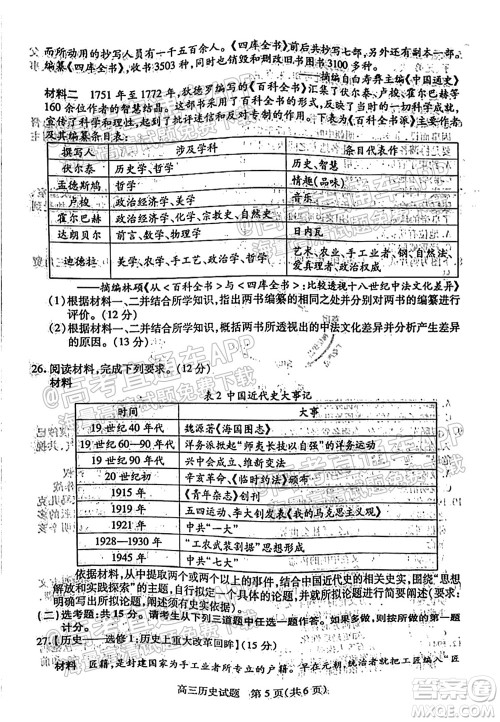 而所动用的抄写人员有一千五百余人。《四库全书》前后共抄写七部，另外还有副本一部。
编纂《四库全书》，收书3503种，与此同时，销毁和删改旧书籍3100多种。
——摘编自白寿彝主编《中国通史》
材料二 1751年至1772年，狄德罗编写的《百科全书》汇集了伏尔泰、卢梭、霍尔巴赫等
160余位作者的智慧结晶。《百科全书》
宣传了科学和理性，
及其编纂条目表：
撰写人 涉及学科 条目代表作
伏尔泰 历史学、哲学 历史、智慧
孟德斯鸠 哲学 情趣(品质)
卢梭 政治经济学、美学 音乐
霍尔巴赫 政治经济学、化学、宗教史、自然史
达朗贝尔 数学、物理、哲学 日内瓦
迪德拉 美学、哲学、手工艺、政治学、哲学 艺术、农业、手工业者、自然史、爱真理者、政治权威
——摘编林硕《从<百科全书>与<四库全书>：比较透视十八世纪中法文化差异》
(1)根据材料一、二并结合所学知识，指出两书编纂的相同之处并对两书的编纂进行
评价。(12分)
(2)根据材料一、二并结合所学知识，概括两书所透视出的中法文化差异并分析产生差异
的原因。(13分)
26. 阅读材料，完成下列要求。(12分)
材料
表2 中国近代史大事记
时间 大事
19世纪40年代 魏源著《海国图志》
19世纪60—90年代 洋务派掀起"师夷长技以自强"的洋务运动
19世纪90年代 兴中会成立、维新变法
20世纪初 辛亥革命、《临时约法》颁布
1915年 《青年杂志》创刊
1919年 五四运动、李大钊发表《我的马克思主义观》
1921年 中共"一大"
1928—1930年 "工农武装割据"思想形成
1945年 中共"七大"
依据材料，从中提取两个或两个以上的事件，结合中国近代史的相关知识，围绕"思想
解放和实践探索"自行拟定一个论题，并就所拟论题展开论述。(要求：明确写出所拟论题，
阐述须有史实依据)
(二)选考题：共15分。请考生从以下三道题中任选一题作答。如果多做，则按所做的第一题
计分。
27.【历史——选修1：历史上重大改革回眸】(15分)
材料 匠籍，是封建国家为手工业者所专立的户籍。早在元朝，统治者就把工匠编入匠
高三历史试题 第5页(共6页)